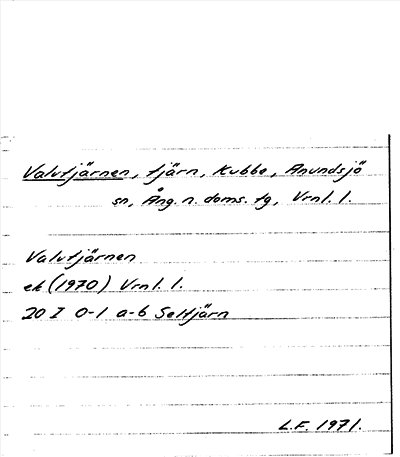 Valutjärnen, tjärn, Kubbe, Anundsjö
sn, Ång. n. doms. tg, Vrnl. l.
Valutjärnen
ek (1970) Vrnl. l.
20 I 0-1 a-b Seltjärn
L.F. 1971.